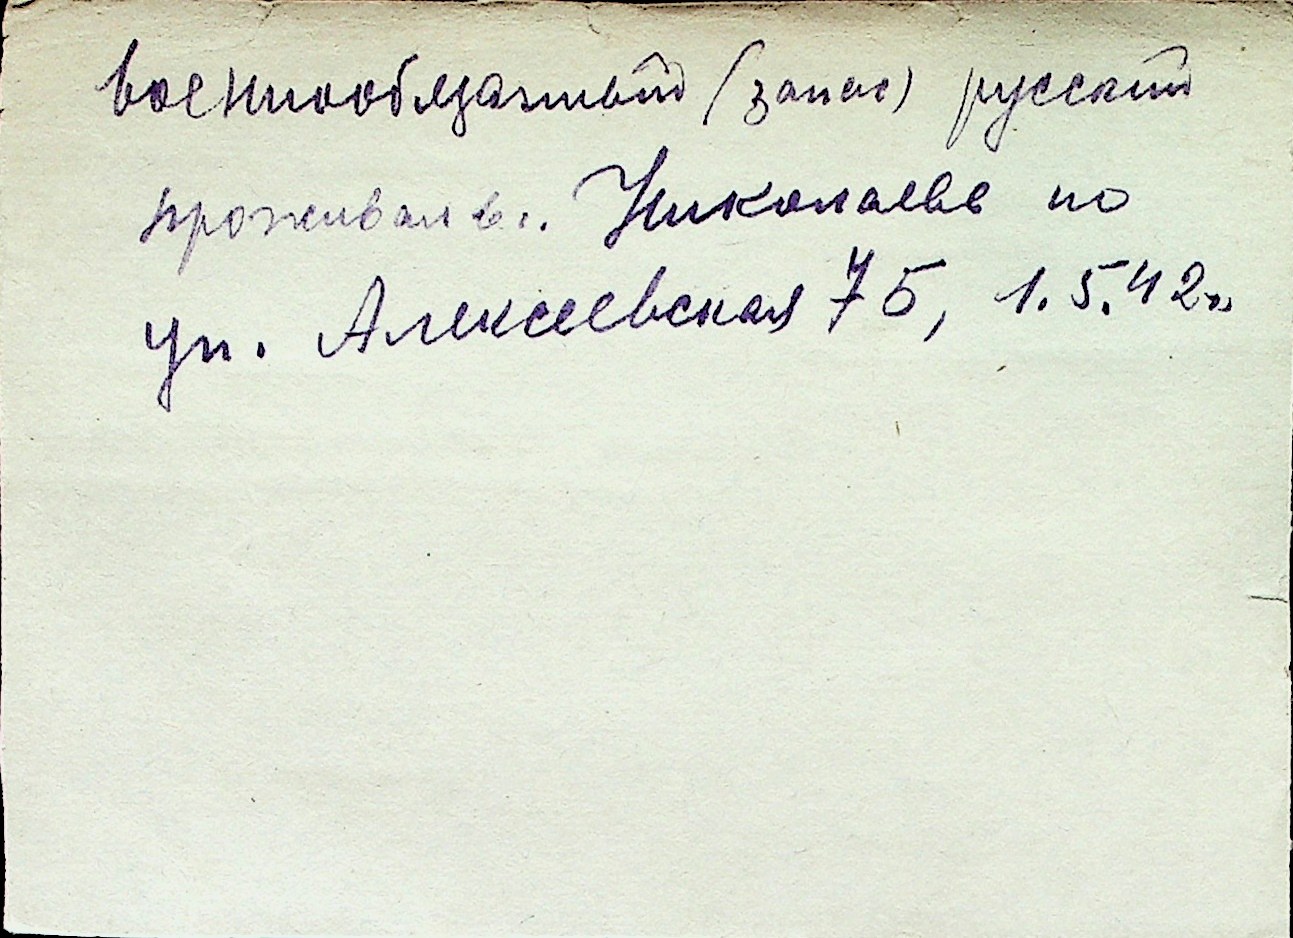 военнообязанный (запас) русский
проживал в г. Николаеве по
ул. Алексеевская 75, 1.5.42г.